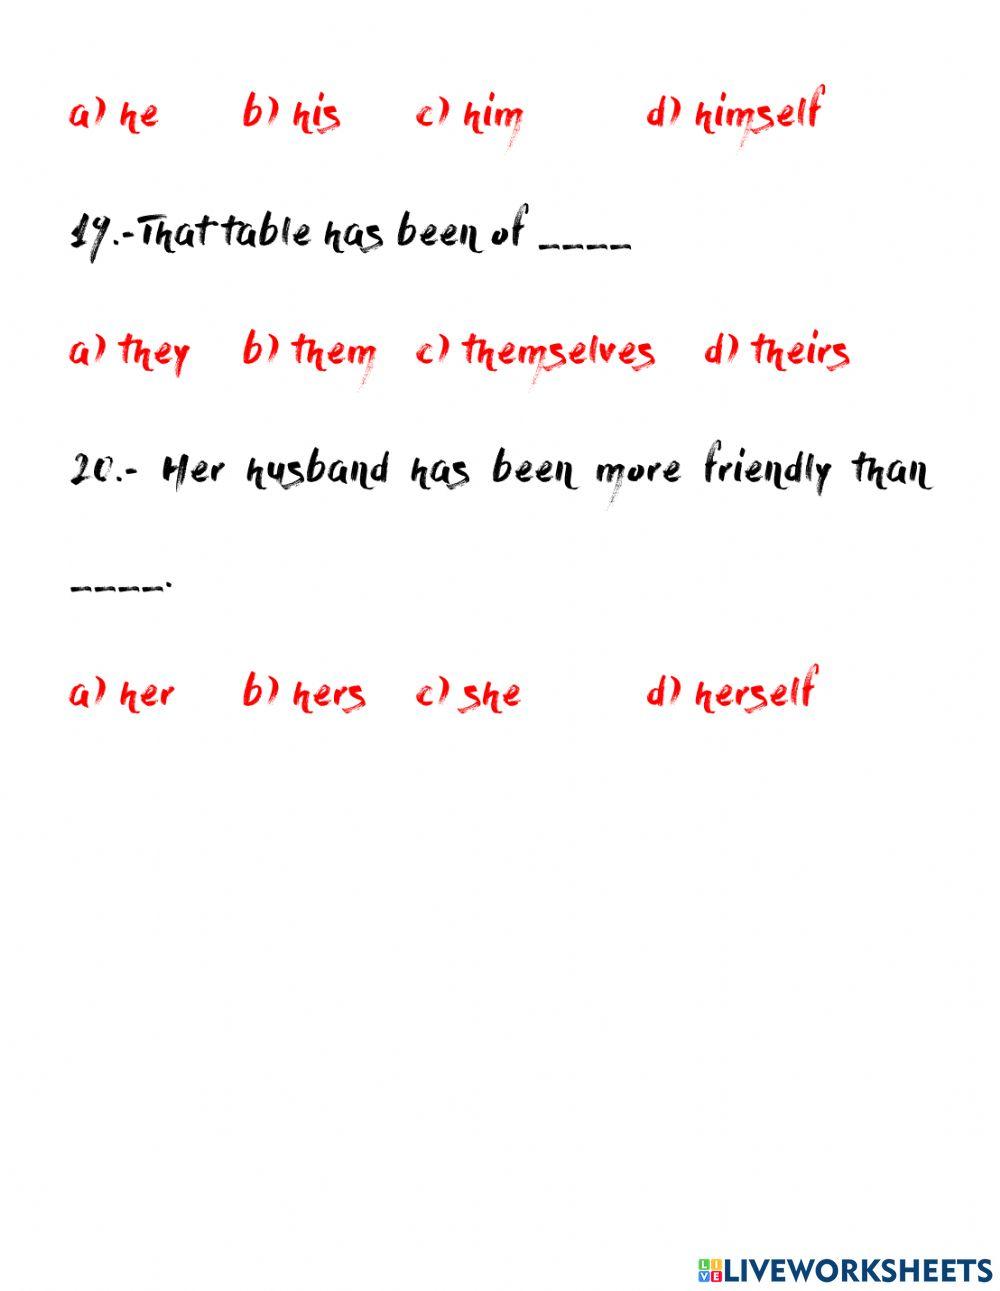 a) he b) his c) him d) himself
19.-That table has been of ____
a) they b) them c) themselves d) theirs
20.- Her husband has been more friendly than
____.
a) her b) hers c) she d) herself
LIVE LIVEWORKSHEETS